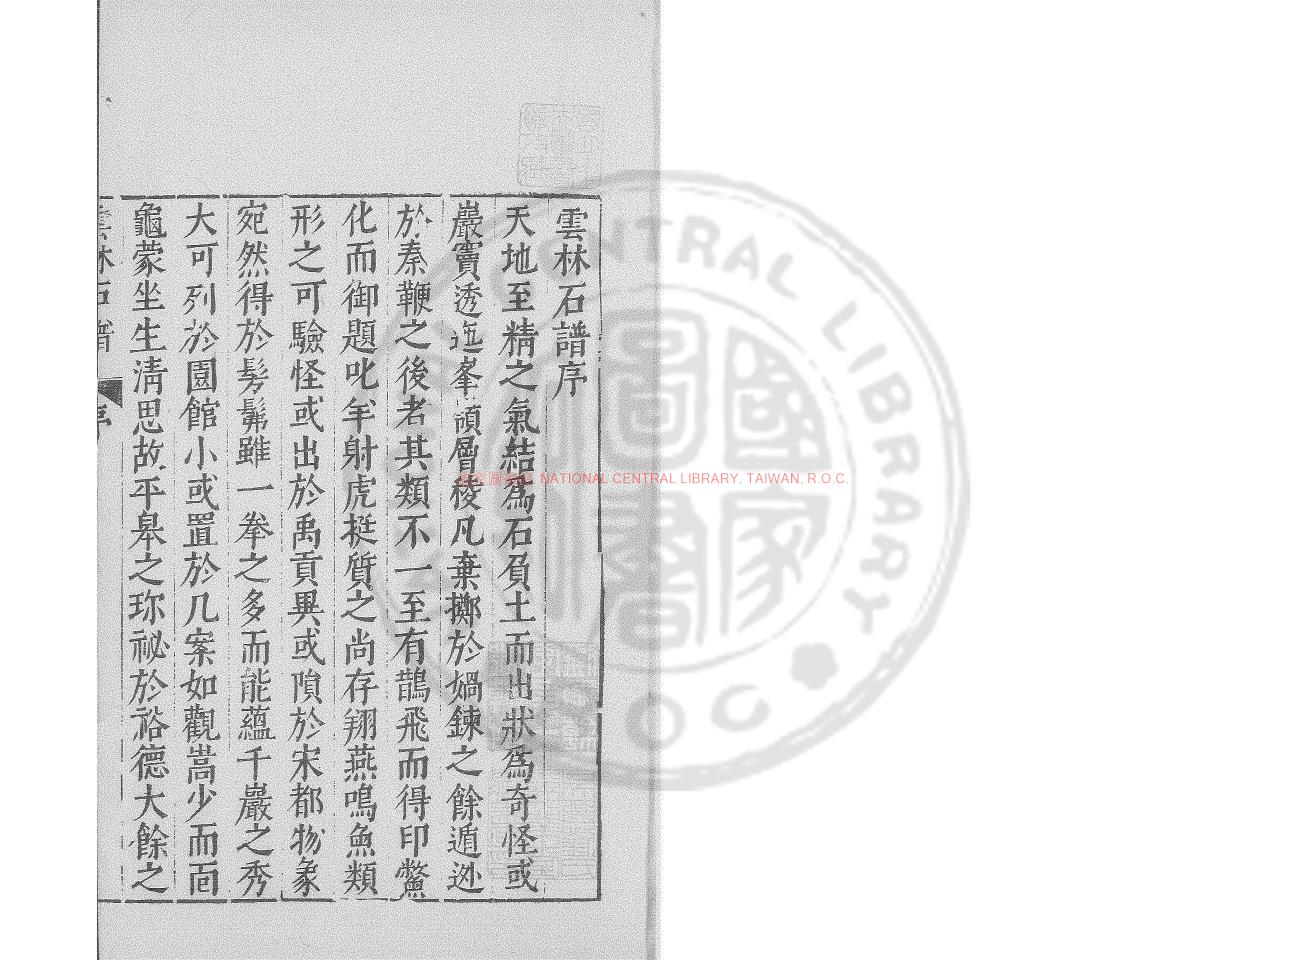 雲林石譜序
天地至精之氣結爲石負土而出狀爲奇怪或
巖竇透迤峯嶺層稜凡棄擲於媧鍊之餘遁逊
於秦鞭之後者其類不一至有鵲飛而得印鱉
化而御題叱羊射虎挺質之尚存翔燕鳴魚類
形之可驗怪或出於禹貢異或隕於宋都物象
宛然得於髣髴雖一拳之多而能蘊千巖之秀
大可列於園館小或置於几案如觀嵩少而面
龜蒙坐生清思故平皋之珎祕於裕德大餘之
雲林石譜 序
NATIONAL CENTRAL LIBRARY, TAIWAN, R.O.C.
CENTRAL LIBRARY
R.O.C
國家圖書館